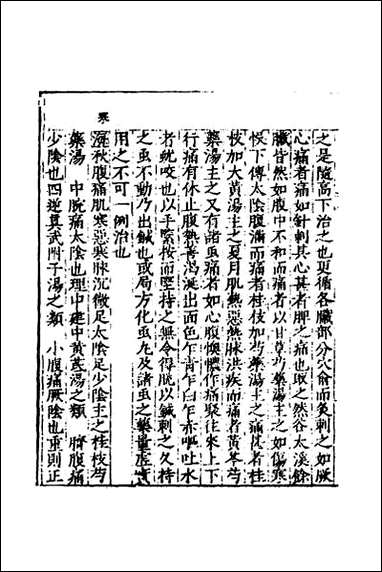 之是隨高下治之也更循各臟部分穴俞而灸刺之如厥
心痛者痛如針刺其心甚者脾之痛也取之然谷太溪餘
臟皆然如腹中不和而痛者以甘草芍藥湯主之如傷寒
悞下傳太陰腹滿而痛者桂枝加芍藥湯主之痛甚者桂
枝加大黃湯主之夏月肌熱惡熱脉洪疾而痛者黃芩芍
藥湯主之又有諸虫痛者如心腹懊憹作痛聚往來上下
行痛有休止腹熱善渴涎出面色乍青乍白乍赤嘔吐水
者蚘咬也以手緊按而堅持之無令得脱以鍼刺之久持
之虫不動乃出鍼也或局方化虫丸及諸虫之藥量虛實
用之不可一例治也
寒
秋腹痛肌寒惡寒脉沉微足太陰足少陰主之桂枝芍
藥湯　中脘痛太陰也理中建中黃芪湯之類　臍腹痛
少陰也四逆真武附子湯之類　小腹痛厥陰也重則正